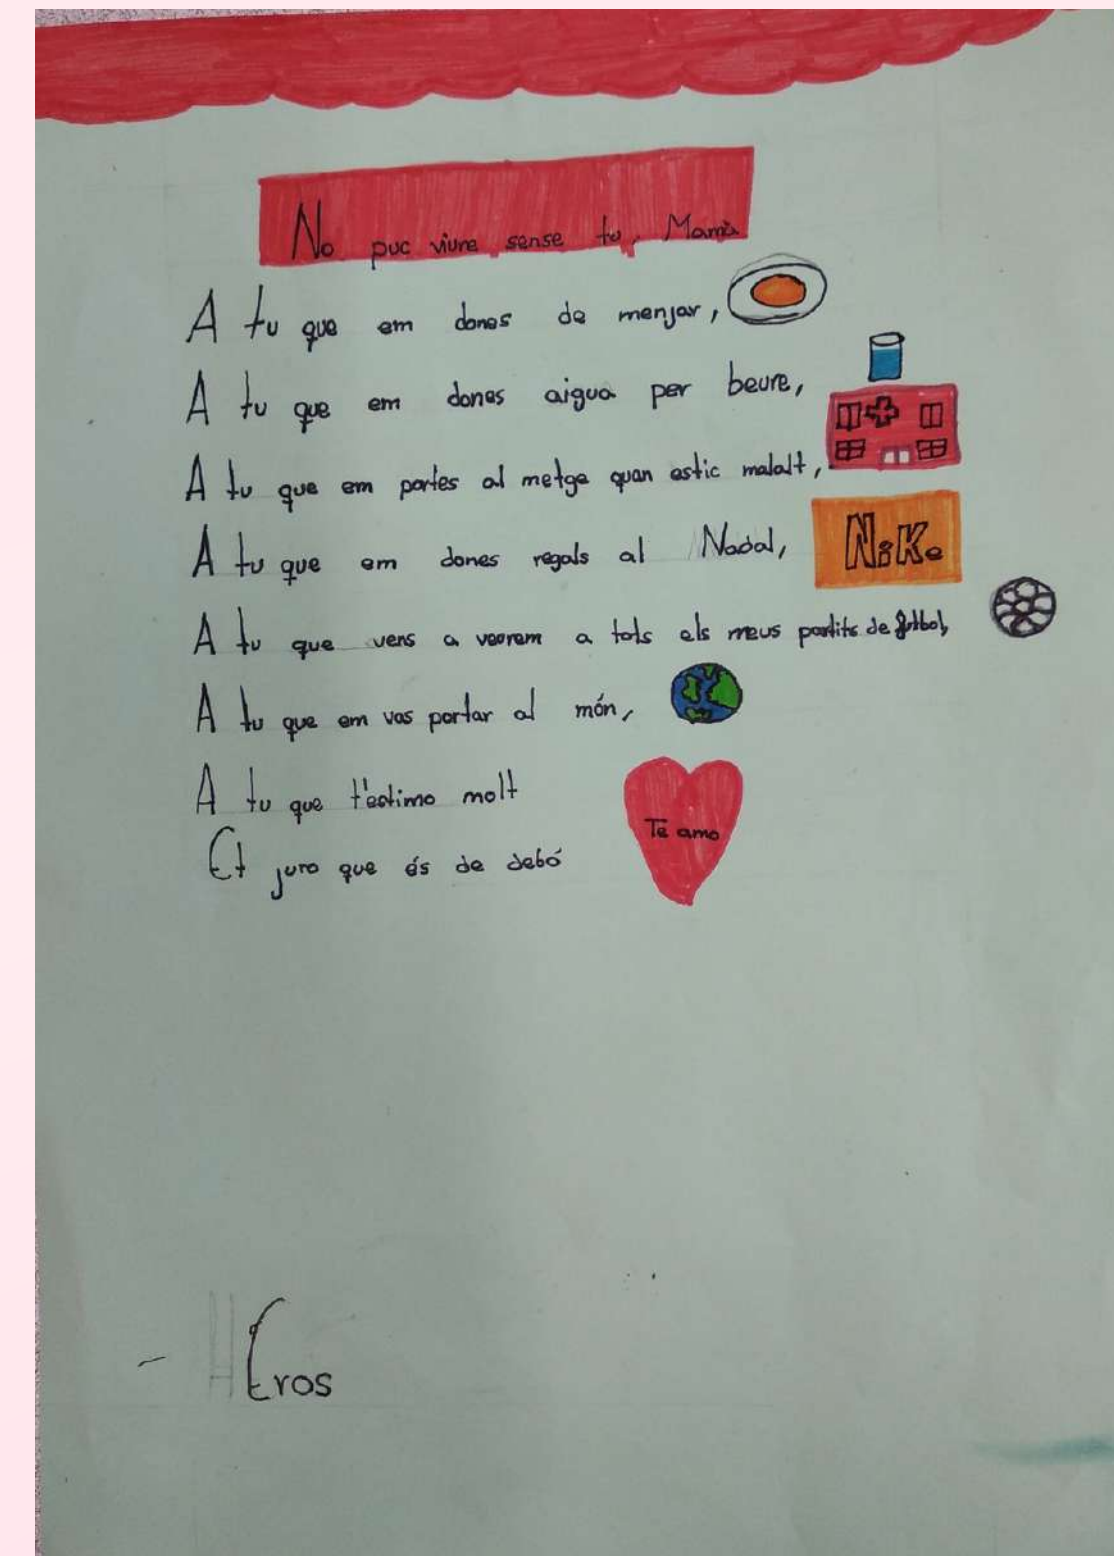 No puc viure sense tu, Mamà
A tu que em dones de menjar,
A tu que em dones aigua per beure,
A tu que em portes al metge quan estic malalt,
A tu que em dones regals al Nadal,
NiKe
A tu que vens a veurem a tots els meus partits de futbol,
A tu que em vas portar al món,
A tu que t'estimo molt
Te amo
Et juro que és de debó
- Eros